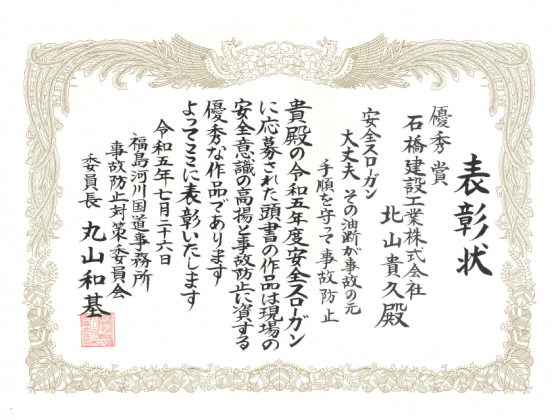 表彰状
優秀賞
石橋建設工業株式会社
北山貴久殿
安全スローガン
大丈夫 その油断が事故の元
手順を守って事故防止
貴殿の令和五年度安全スローガン
に応募された頭書の作品は現場の
安全意識の高揚と事故防止に資する
優秀な作品であります
よってここに表彰いたします
令和五年七月二十六日
福島河川国道事務所
事故防止対策委員会
委員長 丸山和基